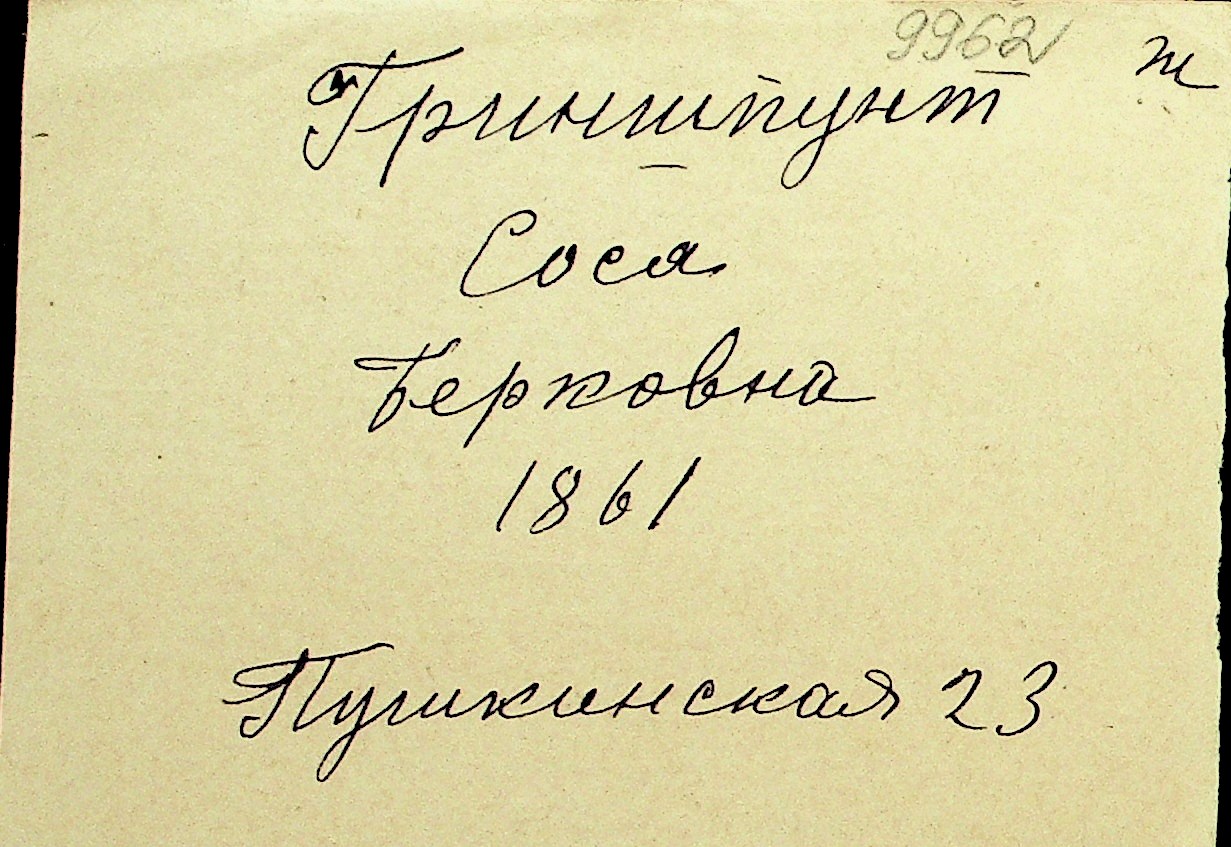 9962 ж
Гриншпунт
Соса
Берковна
1861
Пушкинская 23